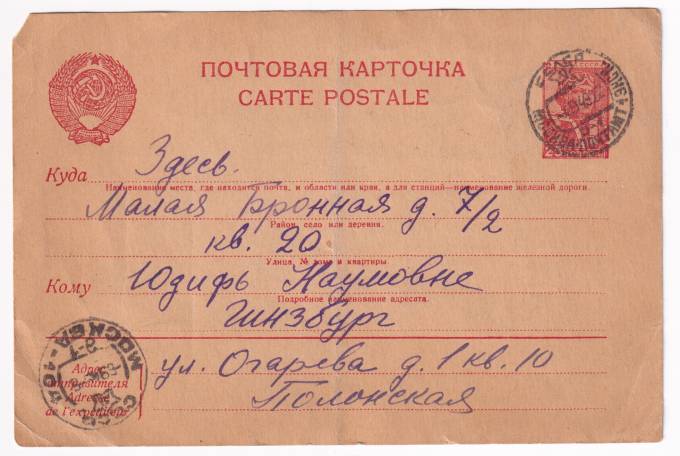 ПОЧТОВАЯ КАРТОЧКА
CARTE POSTALE
Куда Здесь.
Наименование места, где находится почта, и области или края, а для станций—наименование железной дороги.
Малая Бронная д. 7/2
Район, село или деревня.
кв. 20
Улица, № дома и квартиры.
Кому Юдифь Наумовне
Подробное наименование адресата.
Гинзбург
МОСКВА
Адрес отправителя
Adresse de l'expéditeur
ул. Огарева д. 1 кв. 10
Полонская